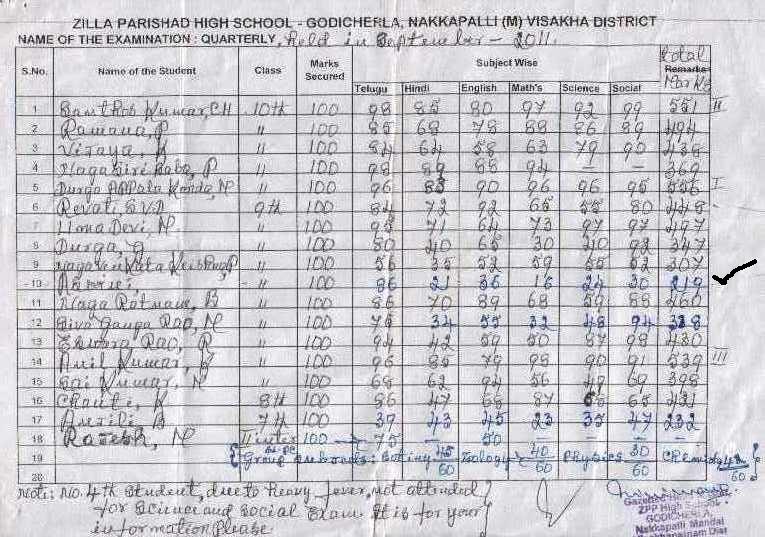 ZILLA PARISHAD HIGH SCHOOL - GODICHERLA, NAKKAPALLI (M) VISAKHA DISTRICT
NAME OF THE EXAMINATION : QUARTERLY, held in September - 2011.
S.No. Name of the Student Class Marks Secured Subject Wise Total Remarks Marks
Telugu Hindi English Math's Science Social
1 Santhosh Kumar, CH 10th 100 98 85 80 97 92 99 551 II
2 Ramana, P " 100 85 68 78 88 86 89 494
3 Vijaya, K " 100 84 64 58 63 79 90 438
4 Nagagiri Babu, P " 100 98 89 88 94 — — 369
5 Durga APPala Konda, N " 100 96 83 90 96 96 95 556 I
6 Revati S.V.D 9th 100 84 72 92 65 55 80 448
7 Uma Devi, N " 100 95 71 64 73 97 97 497
8 Durga, G " 100 80 40 65 30 40 92 347
9 " 100 56 35 52 59 55 52 307
10 " 100 86 21 36 16 24 30 219
11 Naga Ratnam, B " 100 86 70 89 68 59 88 460
12 Siva Ganga Rao, N " 100 75 34 55 32 48 94 338
13 Eswara Rao, R " 100 94 42 59 50 87 98 430
14 Anil Kumar, G " 100 96 85 79 98 90 91 539 III
15 Sai Kumar, N " 100 68 62 94 56 49 69 398
16 K 8th 100 86 47 66 87 65 431
17 Anjili, B 7th 100 39 43 45 23 35 47 232
18 Rajesh, N II inter 100 → 75 — 50 — — —
19 Bi.P.C Group subjects: Botiny 45/60 Zoology → 40/60 Physics 30/60 Chemistry 42/60
20
Note: No. 4th Student, due to heavy fever, not attended
for Science and Social Exam. It is for your
information Please
ZPP High School
GODICHERLA,
Nakkapalli Mandal